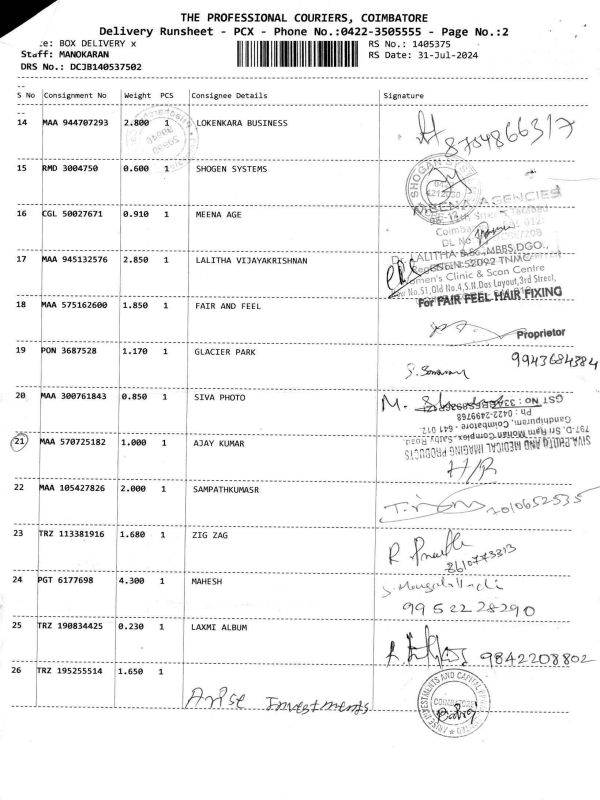 THE PROFESSIONAL COURIERS, COIMBATORE
Delivery Runsheet - PCX - Phone No.:0422-3505555 - Page No.:2
e: BOX DELIVERY x
RS No.: 1405375
Staff: MANOKARAN
RS Date: 31-Jul-2024
DRS No.: DCJB140537502
S No Consignment No Weight PCS Consignee Details Signature
14 MAA 944707293 2.800 1 LOKENKARA BUSINESS
8704866317
15 RMD 3004750 0.600 1 SHOGEN SYSTEMS
SHOGAN
16 CGL 50027671 0.910 1 MEENA AGE
AGENCIES
Coimba
DL No
17 MAA 945132576 2.850 1 LALITHA VIJAYAKRISHNAN
LALITHA B.Sc., MBBS, DGO.,
52092 TNMC
Women's Clinic & Scan Centre
No.51, Old No.4, S.N.Das Layout, 3rd Street,
18 MAA 575162600 1.850 1 FAIR AND FEEL
For FAIR FEEL HAIR FIXING
Proprietor
19 PON 3687528 1.170 1 GLACIER PARK
9943684384
20 MAA 300761843 0.850 1 SIVA PHOTO
M.
GST NO :
Ph : 0422-2499768
Gandhipuram, Coimbatore - 641 012.
797-D, Sri Ram Mohan Complex, Sathy Road
SIVA PHOTO AND MEDICAL IMAGING PRODUCTS
21 MAA 570725182 1.000 1 AJAY KUMAR
H/R
22 MAA 105427826 2.000 1 SAMPATHKUMASR
7010652535
23 TRZ 113381916 1.680 1 ZIG ZAG
R
8610773313
24 PGT 6177698 4.300 1 MAHESH
9952228290
25 TRZ 190834425 0.230 1 LAXMI ALBUM
9842208802
26 TRZ 195255514 1.650 1
Arise Investments
ARISE INVESTMENTS AND CAPITAL
COIMBATORE